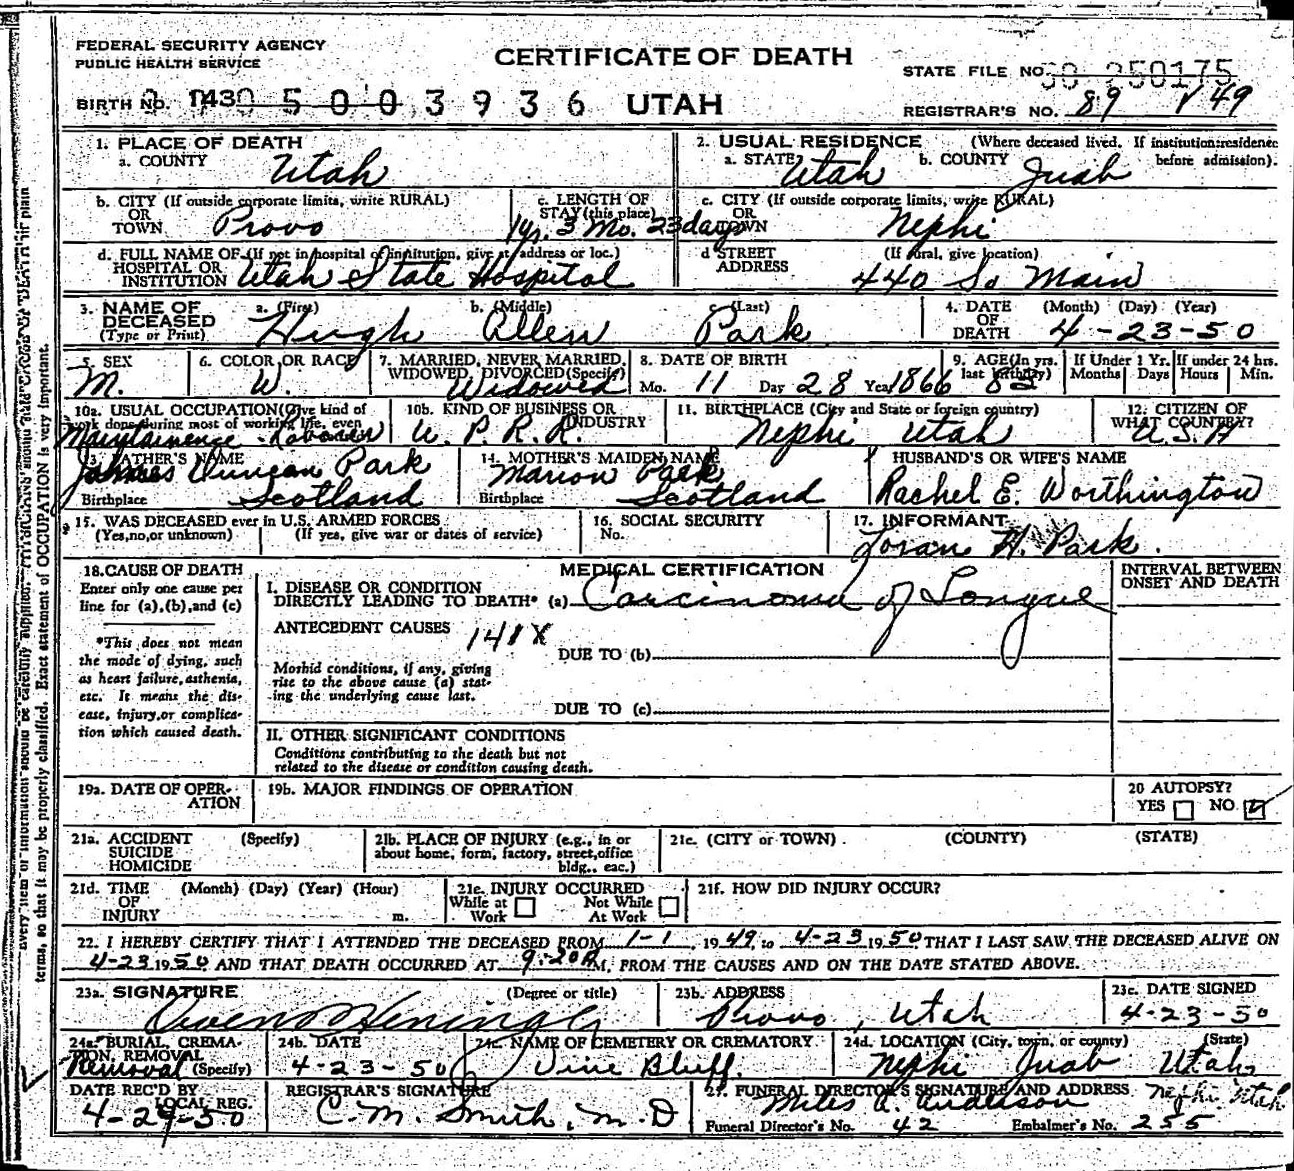 FEDERAL SECURITY AGENCY
PUBLIC HEALTH SERVICE
CERTIFICATE OF DEATH
STATE FILE NO. 50 250175
BIRTH NO. 1430 5 0 0 3 9 3 6 UTAH
REGISTRAR'S NO. 89 49
1. PLACE OF DEATH
a. COUNTY Utah
2. USUAL RESIDENCE (Where deceased lived. If institution:residence before admission).
a. STATE Utah b. COUNTY Juab
b. CITY (If outside corporate limits, write RURAL)
OR
TOWN Provo
c. LENGTH OF
STAY (this place)
1yr. 3 Mo. 23 days
c. CITY (If outside corporate limits, write RURAL)
OR
TOWN Nephi
d. FULL NAME OF (If not in hospital of institution, give st. address or loc.)
HOSPITAL OR
INSTITUTION Utah State Hospital
d STREET (If rural, give location)
ADDRESS 440 So Main
3. NAME OF DECEASED (Type or Print)
a. (First) Hugh b. (Middle) Allen c. (Last) Park
4. DATE OF DEATH (Month) (Day) (Year)
4-23-50
5. SEX M.
6. COLOR OR RACE W.
7. MARRIED, NEVER MARRIED, WIDOWED, DIVORCED (Specify) Widowed
8. DATE OF BIRTH
Mo. 11 Day 28 Year 1866
9. AGE (In yrs. last birthday)
If Under 1 Yr. Months Days
If under 24 hrs. Hours Min.
10a. USUAL OCCUPATION (Give kind of work done during most of working life, even
10b. KIND OF BUSINESS OR INDUSTRY
U. P. R. R.
11. BIRTHPLACE (City and State or foreign country)
Nephi Utah
12. CITIZEN OF WHAT COUNTRY?
U.S.A
13. FATHER'S NAME
Duncan Park
Birthplace Scotland
14. MOTHER'S MAIDEN NAME
Marion Park
Birthplace Scotland
HUSBAND'S OR WIFE'S NAME
Rachel E. Worthington
15. WAS DECEASED ever in U.S. ARMED FORCES
(Yes, no, or unknown) (If yes, give war or dates of service)
16. SOCIAL SECURITY
No.
17. INFORMANT
Loran H. Park.
18. CAUSE OF DEATH
Enter only one cause per
line for (a), (b), and (c)
*This does not mean
the mode of dying, such
as heart failure, asthenia,
etc. It means the dis-
ease, injury, or complica-
tion which caused death.
MEDICAL CERTIFICATION
INTERVAL BETWEEN
ONSET AND DEATH
I. DISEASE OR CONDITION
DIRECTLY LEADING TO DEATH* (a) Carcinoma of Tongue
ANTECEDENT CAUSES 141X
DUE TO (b)
Morbid conditions, if any, giving
rise to the above cause (a) stat-
ing the underlying cause last.
DUE TO (c)
II. OTHER SIGNIFICANT CONDITIONS
Conditions contributing to the death but not
related to the disease or condition causing death.
19a. DATE OF OPER-
ATION
19b. MAJOR FINDINGS OF OPERATION
20 AUTOPSY?
YES NO
21a. ACCIDENT (Specify)
SUICIDE
HOMICIDE
21b. PLACE OF INJURY (e.g., in or
about home, form, factory, street, office
bldg., eac.)
21c. (CITY or TOWN) (COUNTY) (STATE)
21d. TIME (Month) (Day) (Year) (Hour)
OF
INJURY m.
21e. INJURY OCCURRED
While at Work Not While At Work
21f. HOW DID INJURY OCCUR?
22. I HEREBY CERTIFY THAT I ATTENDED THE DECEASED FROM 1-1, 1949 to 4-23 1950 THAT I LAST SAW THE DECEASED ALIVE ON
4-23 1950 AND THAT DEATH OCCURRED AT 9:20 A M. FROM THE CAUSES AND ON THE DATE STATED ABOVE.
23a. SIGNATURE (Degree or title)
Owen
23b. ADDRESS
Provo, Utah
23c. DATE SIGNED
4-23-50
24a. BURIAL, CREMA-
TION, REMOVAL
Removal (Specify)
24b. DATE
4-23-50
24c. NAME OF CEMETERY OR CREMATORY
Vine Bluff.
24d. LOCATION (City, town, or county) (State)
Nephi Juab Utah.
DATE REC'D BY
LOCAL REG.
4-29-50
REGISTRAR'S SIGNATURE
C. M. Smith, M.D
27. FUNERAL DIRECTOR'S SIGNATURE AND ADDRESS
Miles A. Anderson Nephi Utah
Funeral Director's No. 42 Embalmer's No. 255
terms, so that it may be properly classified. Exact statement of OCCUPATION is very important.